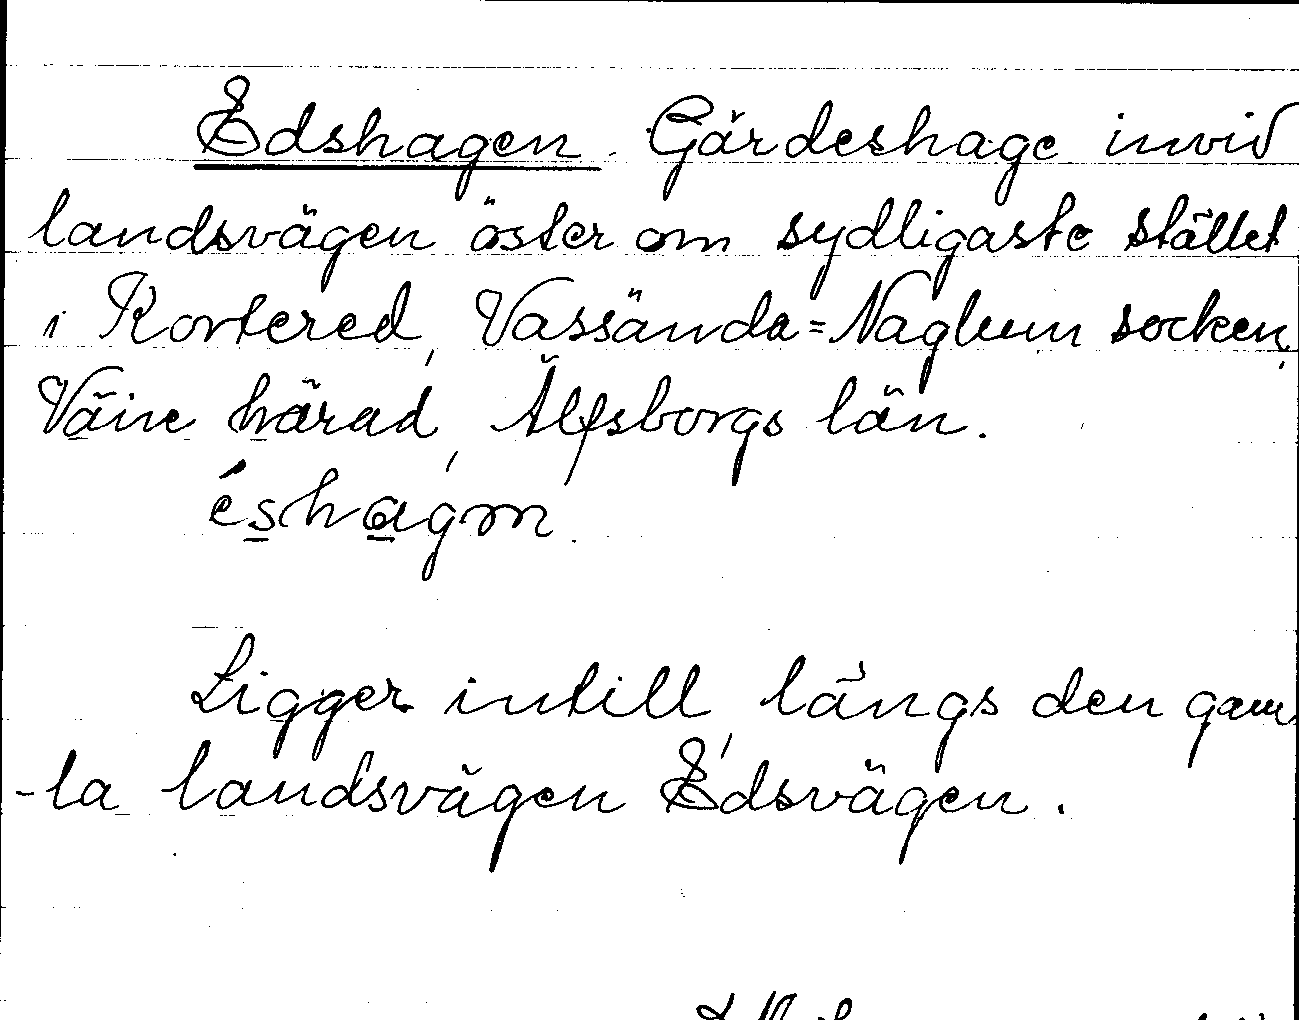 Edshagen. Gärdeshage invid
landsvägen öster om sydligaste stället
i Kortered, Vassända=Naglum socken,
Väne härad, Älfsborgs län.
éshagm.
Ligger intill, längs den gam
-la landsvägen Edsvägen.